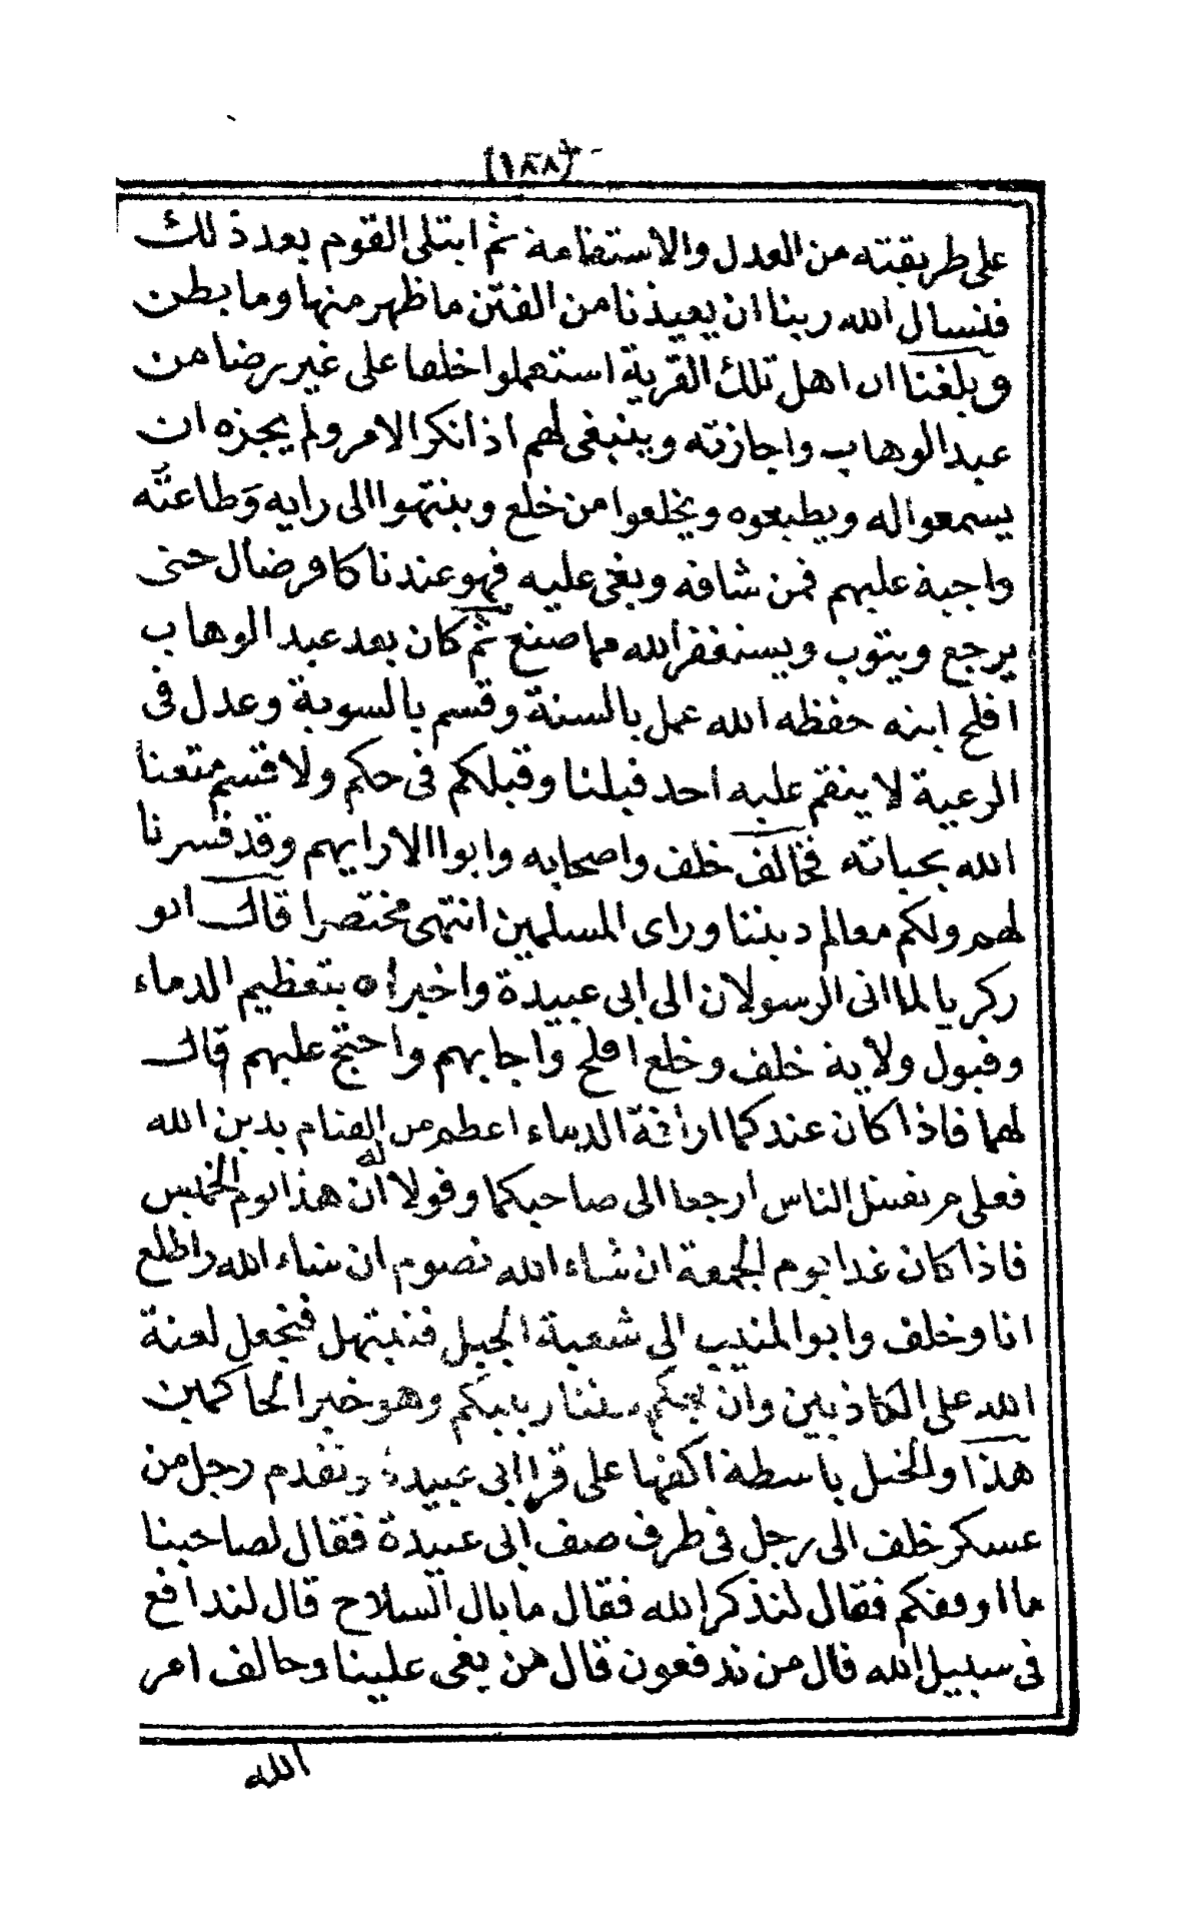 [١٨٨]
على طريقته من العدل والاستقامة ثم ابتلى القوم بعد ذلك
فنسال الله ربنا ان يعيذنا من الفتن ما ظهر منها وما بطن
وبلغنا ان اهل تلك القرية استعملوا خلفا على غير رضا من
عبد الوهاب واجازته وينبغى لهم اذ انكر الامر ولم يجزه ان
يسمعوا له ويطيعوه ويخلعوا من خلع وينتهوا الى رايه وَطاعتُه
واجبة عليهم فمن شاقه وبغى عليه فهو عندنا كافر ضال حتى
يرجع ويتوب ويستغفر الله مما صنع ثم كان بعد عبد الوهاب
افلح ابنه حفظه الله عمل بالسنة وقسم بالسوية وعدل فى
الرعية لا ينقم عليه احد قبلنا وقبلكم فى حكم ولا قسم متعنا
الله بحياته فخالف خلف واصحابه وابوا الا رايهم وقد فسرنا
لهم ولكم معالم ديننا وراى المسلمين انتهى مختصرا قال ابو
زكريا لما اتى الرسولان الى ابى عبيدة واخبراه بتعظيم الدماء
وقبول ولاية خلف وخلع افلح واجابهم واحتج عليهم قال
لهما فاذا كان عندكما اراقة الدماء اعظم من القيام بدين الله
فعلى م نقتل الناس ارجعا الى صاحبكما وقولا له ان هذا يوم الخميس
فاذا كان غدا يوم الجمعة ان شاء الله نصوم ان شاء الله واطلع
انا وخلف وابو المنيب الى شعبة الجبل فنبتهل فنجعل لعنة
الله على الكاذبين وان يحكم بيننا ربنا وهو خير الحاكمين
هذا والخيل باسطة اكفها على قرا ابى عبيدة وتقدم رجل من
عسكر خلف الى رجل فى طرف صف ابى عبيدة فقال لصاحبنا
ما اوقفكم فقال لنذكر الله فقال ما بال السلاح قال لندافع
فى سبيل الله قال من تدفعون قال من بغى علينا وخالف امر
الله